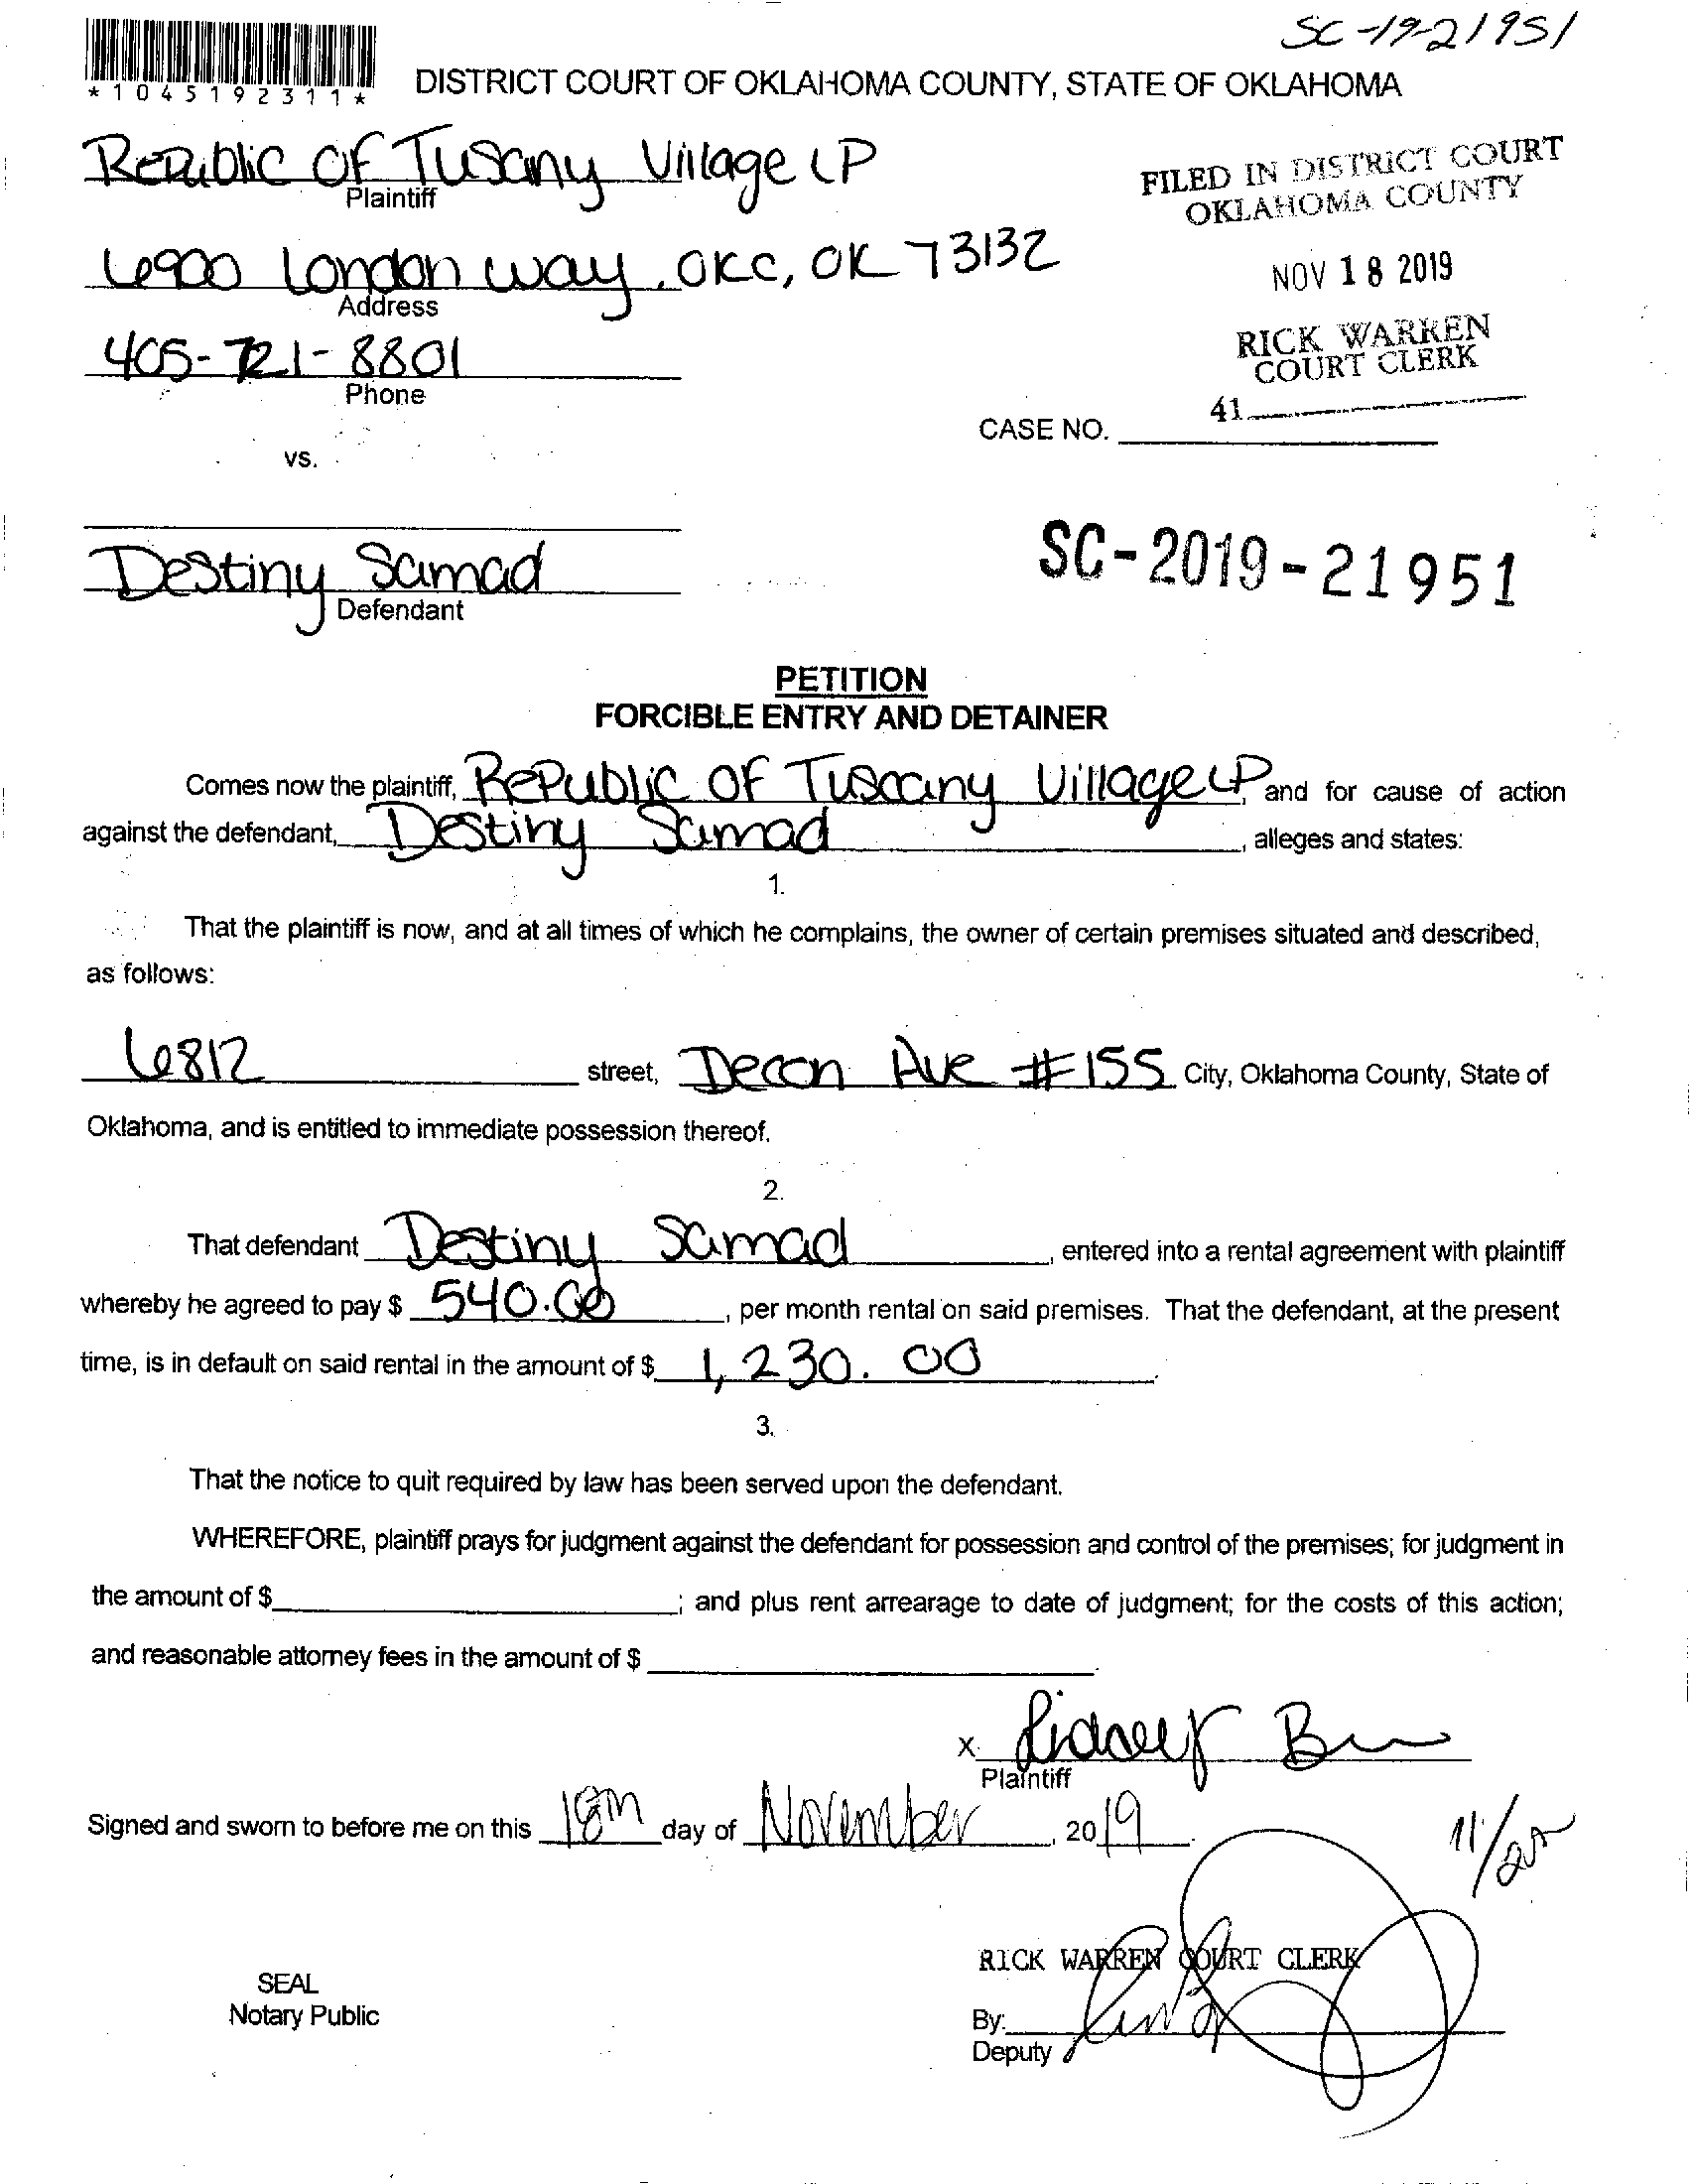 SC-19-21951
*1045192311*
DISTRICT COURT OF OKLAHOMA COUNTY, STATE OF OKLAHOMA
Republic OF Tuscany Village LP
Plaintiff
FILED IN DISTRICT COURT
OKLAHOMA COUNTY
6900 London Way, OKC, OK 73132
Address
NOV 18 2019
405-721-8801
Phone
RICK WARREN
COURT CLERK
41
CASE NO.
vs.
Destiny Samad
Defendant
SC-2019-21951
PETITION
FORCIBLE ENTRY AND DETAINER
Comes now the plaintiff, RePublic OF Tuscany Village LP, and for cause of action
against the defendant, Destiny Samad, alleges and states:
1.
That the plaintiff is now, and at all times of which he complains, the owner of certain premises situated and described,
as follows:
6812 street, Decon Ave #155 City, Oklahoma County, State of
Oklahoma, and is entitled to immediate possession thereof.
2.
That defendant Destiny Samad, entered into a rental agreement with plaintiff
whereby he agreed to pay $ 540.00, per month rental on said premises. That the defendant, at the present
time, is in default on said rental in the amount of $ 1,230.00.
3.
That the notice to quit required by law has been served upon the defendant.
WHEREFORE, plaintiff prays for judgment against the defendant for possession and control of the premises; for judgment in
the amount of $ ; and plus rent arrearage to date of judgment; for the costs of this action;
and reasonable attorney fees in the amount of $ .
x
Plaintiff
Signed and sworn to before me on this 18th day of November, 2019.
11/25
RICK WARREN COURT CLERK
SEAL
Notary Public
By:
Deputy